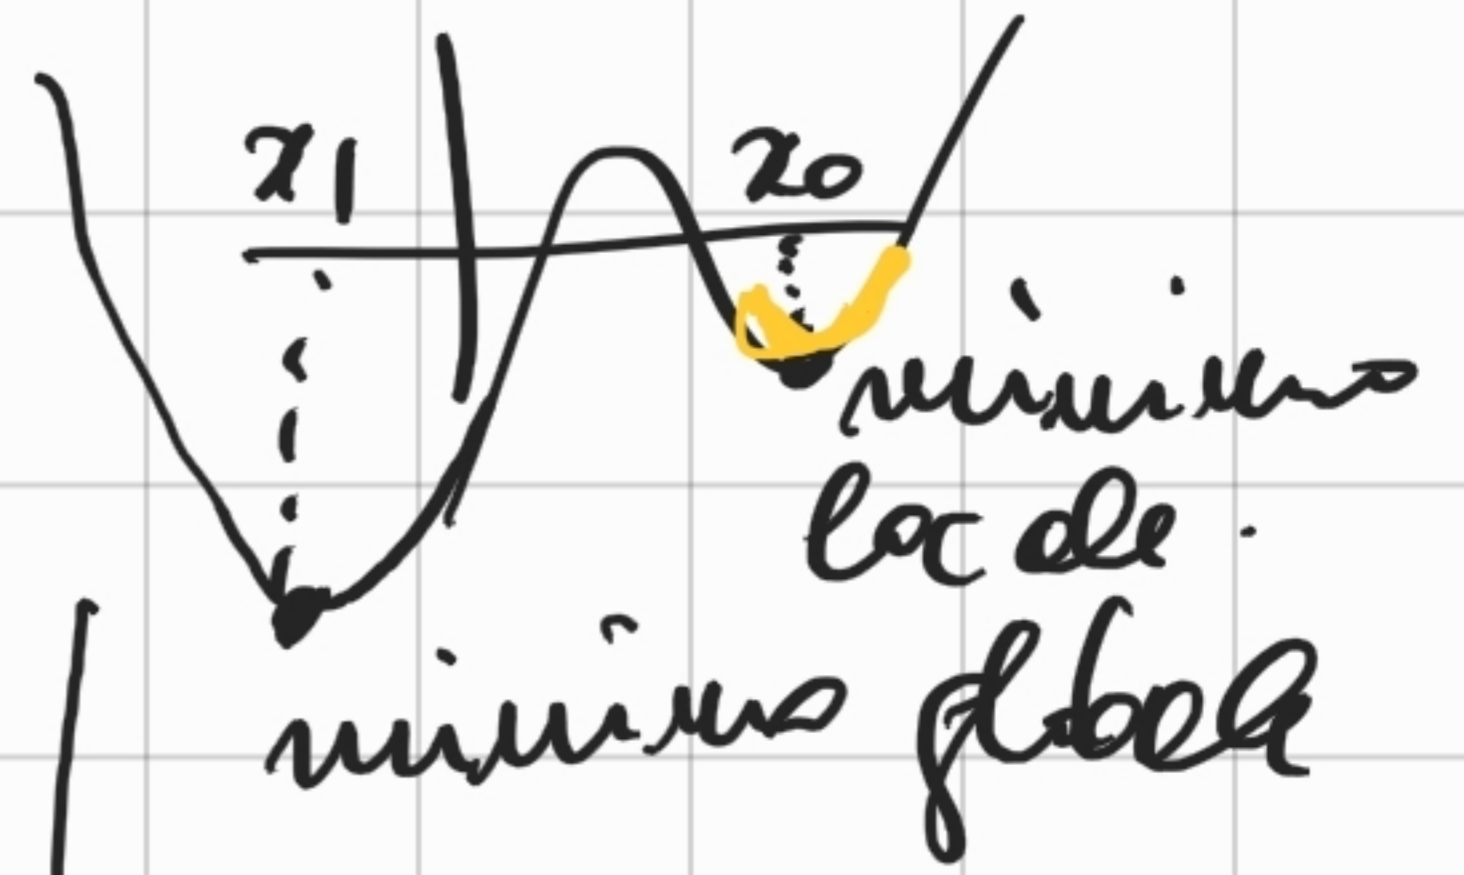 x1
x0
minimo
locale.
minimo globale